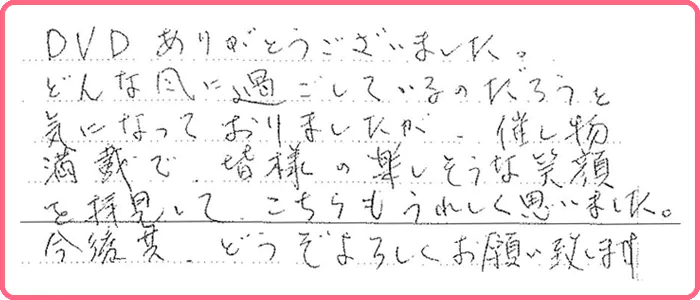 DVDありがとうございました。
どんな風に過ごしているのだろうと
気になっておりましたが、催し物
満載で、皆様の楽しそうな笑顔
を拝見して、こちらもうれしく思いました。
今後共、どうぞよろしくお願い致します